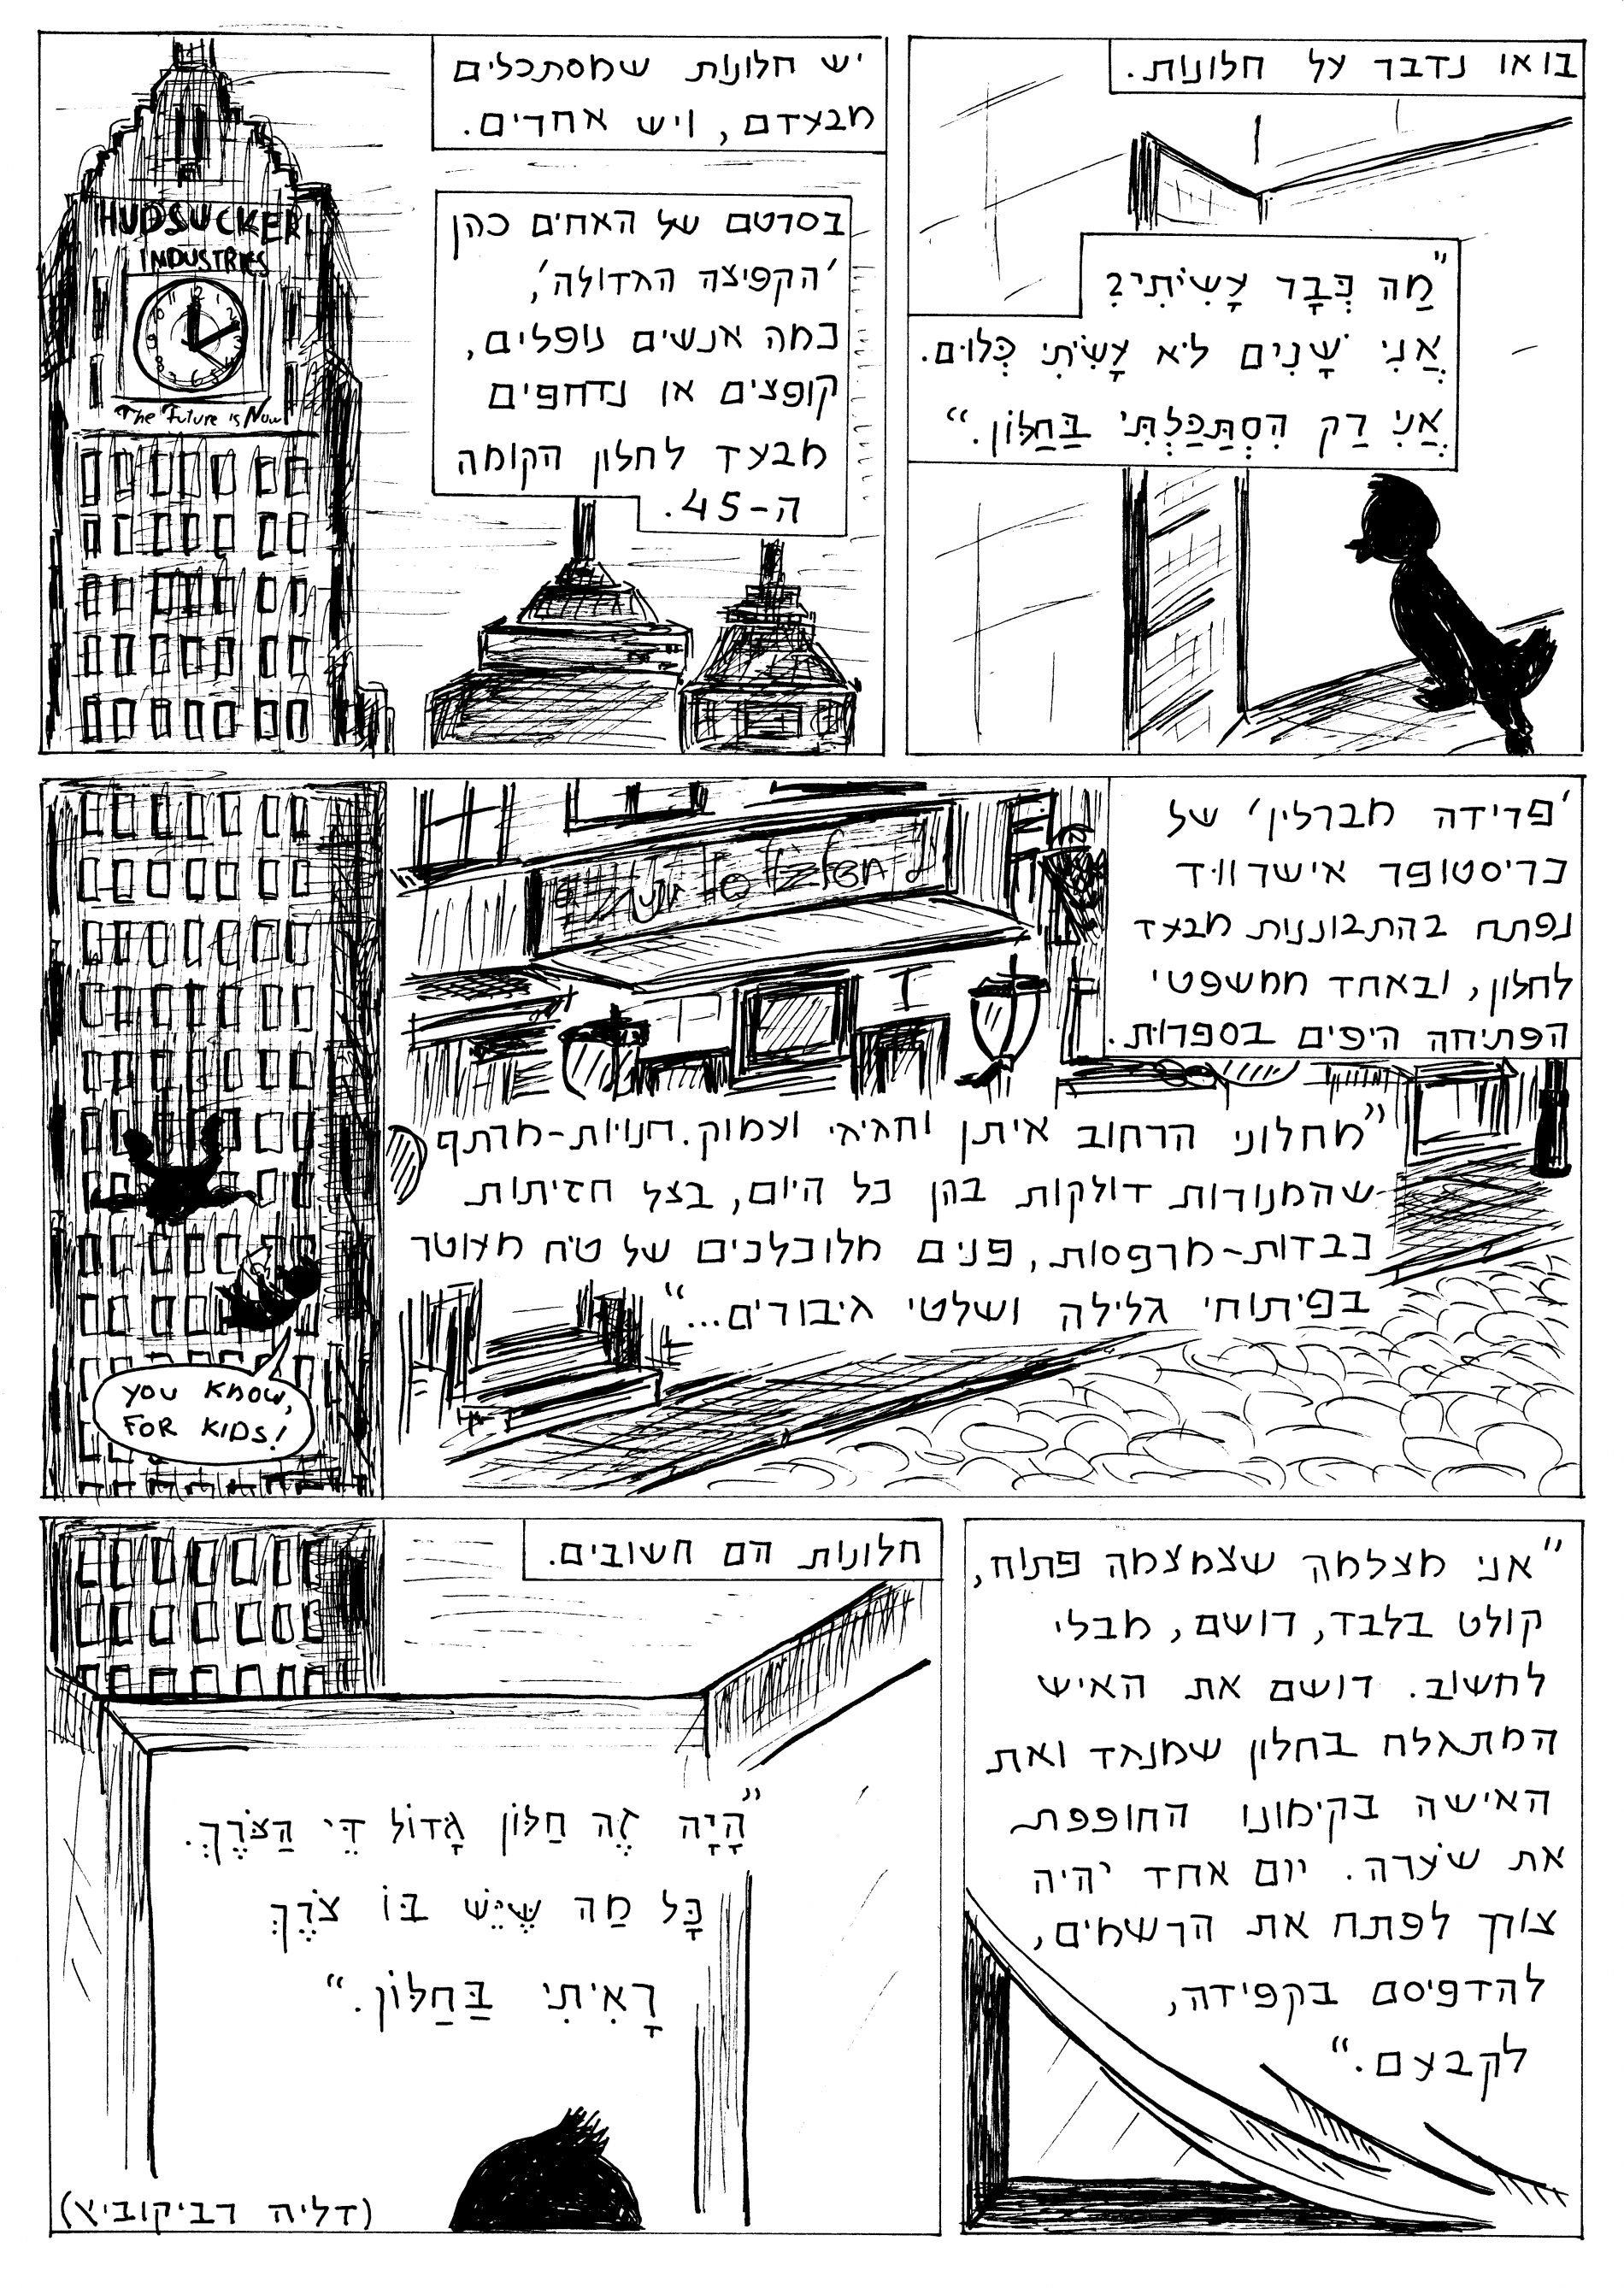 בואו נדבר על חלונות.
"מַה כְּבָר עָשִׂיתִי?
אֲנִי שָׁנִים לֹא עָשִׂיתִי כְּלוּם.
אֲנִי רַק הִסְתַּכַּלְתִּי בַּחַלּוֹן."
יש חלונות שמסתכלים
מבעדם, ויש אחרים.
בסרטם של האחים כהן
'הקפיצה הגדולה',
כמה אנשים נופלים,
קופצים או נדחפים
מבעד לחלון הקומה
ה-45.
HUDSUCKER
INDUSTRIES
12
The Future is Now
'פרידה מברלין' של
כריסטופר אישרווּד
נפתח בהתבוננות מבעד
לחלון, ובאחד ממשפטי
הפתיחה היפים בספרות.
"מחלוני הרחוב איתן וחגיגי ועמוק. חנויות-מרתף
שהמנורות דולקות בהן כל היום, בצל חזיתות
כבדות-מרפסות, פנים מלוכלכים של טיח מעוטר
בפיתוחי גלילה ושלטי גיבורים..."
YOU KNOW,
FOR KIDS!
"אני מצלמה שצמצמה פתוח,
קולט בלבד, רושם, מבלי
לחשוב. רושם את האיש
המתגלח בחלון שמנגד ואת
האישה בקימונו החופפת
את שׂערה. יום אחד יהיה
צורך לפתח את הרשמים,
להדפיסם בקפידה,
לקבעם."
חלונות הם חשובים.
"הָיָה זֶה חַלּוֹן גָּדוֹל דֵּי הַצֹּרֶךְ.
כָּל מַה שֶּׁיֵּשׁ בּוֹ צֹרֶךְ
רָאִיתִי בַּחַלּוֹן."
(דליה רביקוביץ)